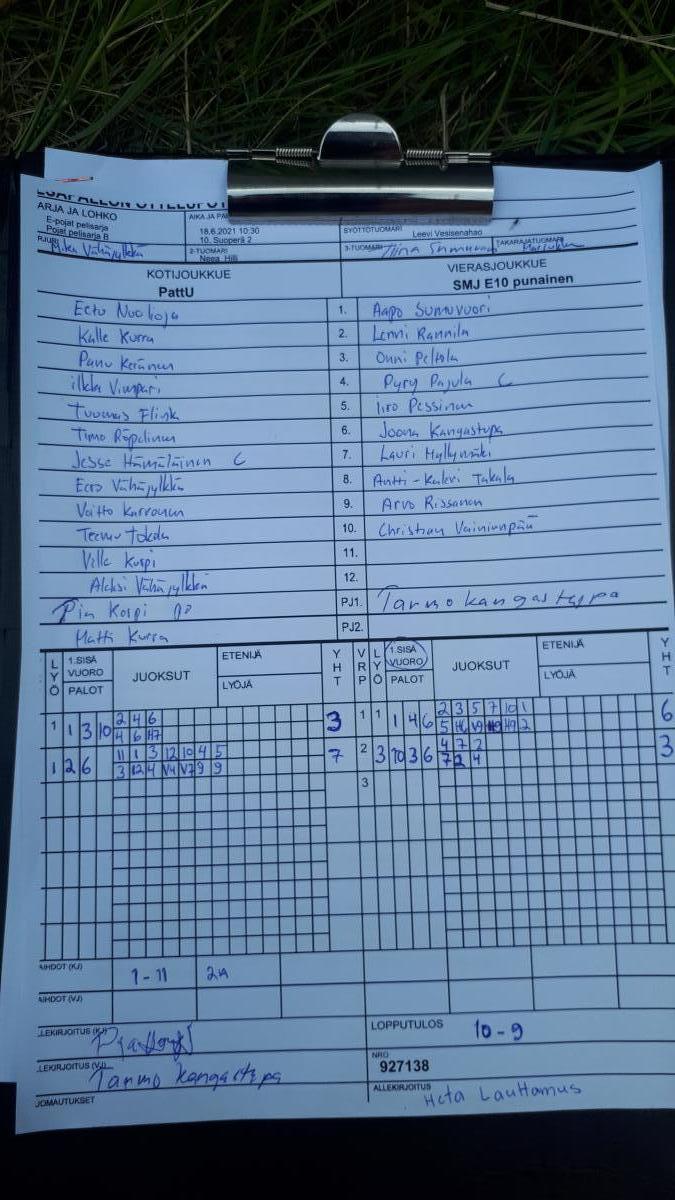 ARJA JA LOHKO
E-pojat pelisarja
Pojat pelisarja B
AIKA JA
18.6.2021 10:30
10. Superpä 2
SYÖTTÖTUOMARI
Leevi Vesisenaho
Mika Vähäjylkkä
2-TUOMARI
Neea Hilli
3-TUOMARI Tiina
TAKARAJATUOMARI
KOTIJOUKKUE
PattU
VIERASJOUKKUE
SMJ E10 punainen
Eetu Nuoljoja 1. Aapo Sumuvuori
Kalle Kurra 2. Lenni Rannila
Panu Keränen 3. Onni Peltola
Ilkka Vimpari 4. Pyry Pajula C
Tuomas Flink 5. Iiro Pessinen
Timo Röpelinen 6. Joona Kangastupa
Jesse Hämäläinen C 7. Lauri Hyllymäki
Eero Vähäjylkkä 8. Antti-Kalevi Takala
Voitto Karronen 9. Arvo Rissanen
Teemu Tokola 10. Christian Vainionpää
Ville Korpi 11.
Aleksi Vähäjylkkä 12.
Pia Korpi PJ1. Tarmo Kangastupa
Matti Kurra PJ2.
LYÖ 1.SISÄ VUORO PALOT JUOKSUT ETENIJÄ LYÖJÄ YHT VRP LYÖ 1.SISÄ VUORO PALOT JUOKSUT ETENIJÄ LYÖJÄ YHT
1 1 3 10 2 4 6 3 1 1 1 4 6 2 3 5 7 10 1 6
4 6 H7
1 2 6 11 1 3 12 10 4 5 7 2 3 10 3 6 4 7 2 3
3 12 4 V4 V7 9 9 7 2 4
3
AIHDOT (KJ) 1-11 2A
AIHDOT (VJ)
LLEKIRJOITUS (KJ)
LOPPUTULOS 10-9
LLEKIRJOITUS (VJ) Tarmo Kangastupa
NRO
927138
JOMAUTUKSET
ALLEKIRJOITUS Heta Lauttamus